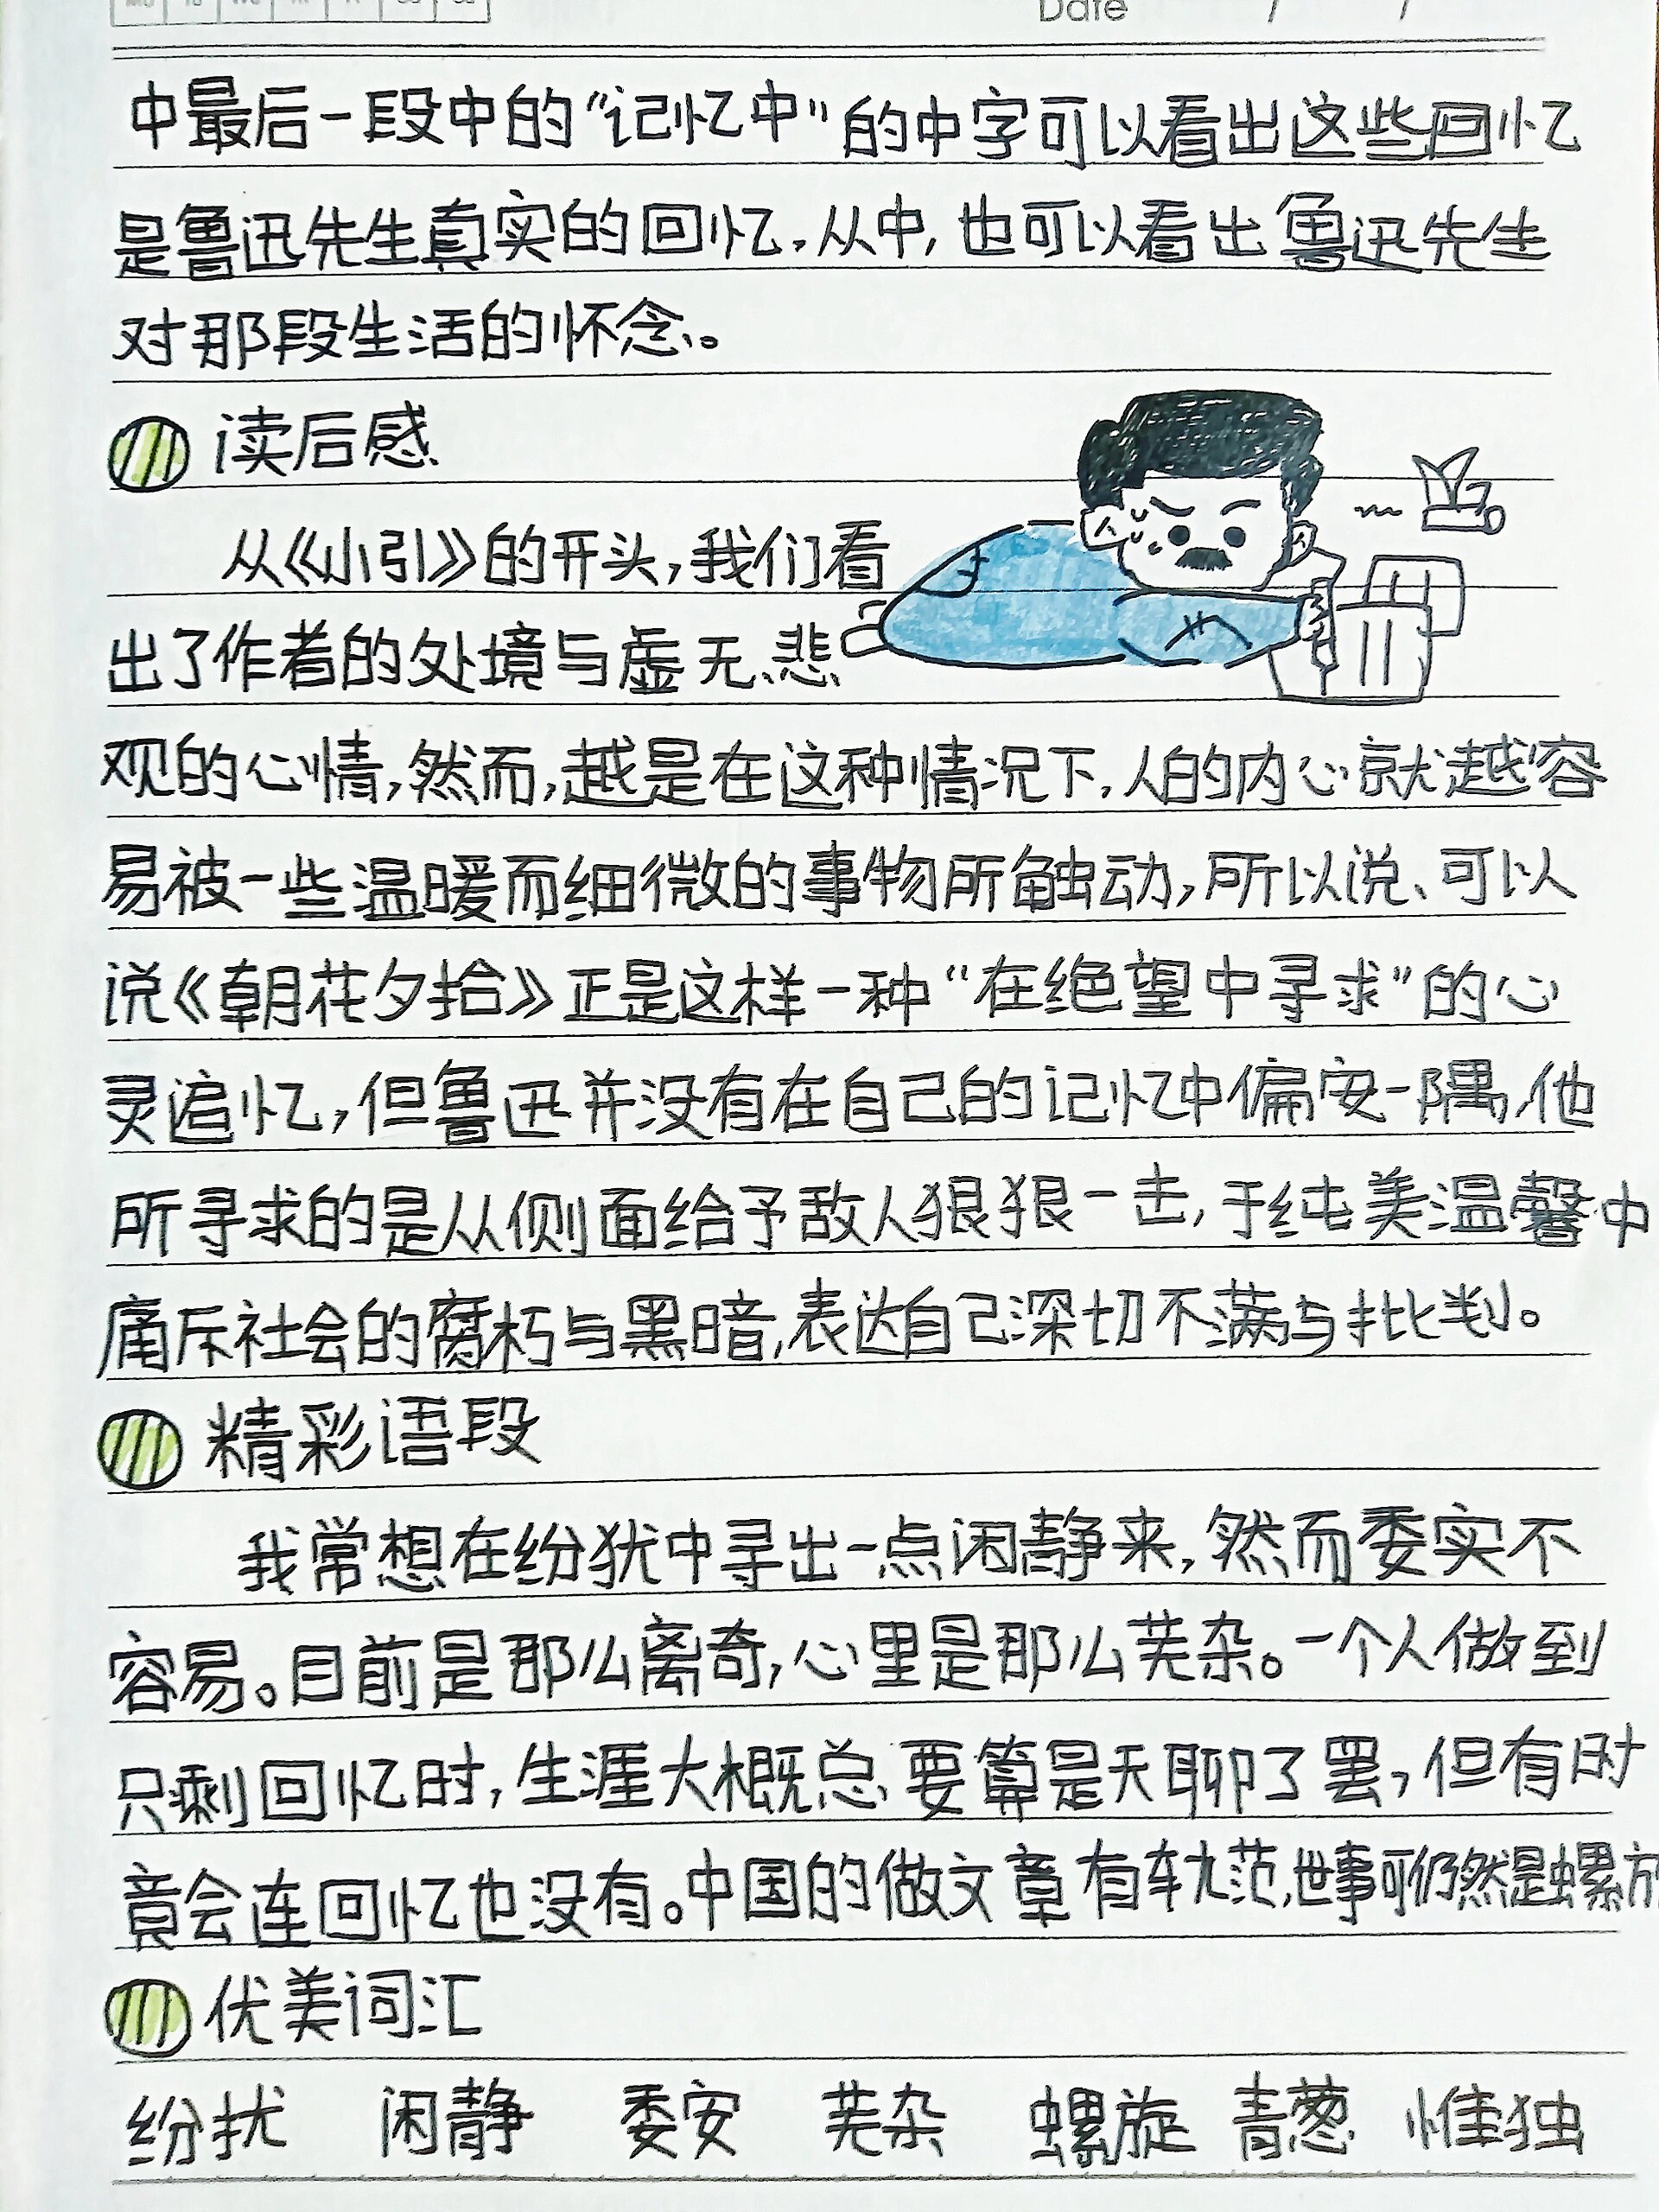 Date / /
中最后一段中的“记忆中”的中字可以看出这些回忆
是鲁迅先生真实的回忆.从中,也可以看出鲁迅先生
对那段生活的怀念。
读后感
从《小引》的开头,我们看
出了作者的处境与虚无、悲
观的心情,然而,越是在这种情况下,人的内心就越容
易被一些温暖而细微的事物所触动,所以说、可以
说《朝花夕拾》正是这样一种“在绝望中寻求”的心
灵追忆,但鲁迅并没有在自己的记忆中偏安一隅,他
所寻求的是从侧面给予敌人狠狠一击,于纯美温馨中
痛斥社会的腐朽与黑暗,表达自己深切不满与批判。
精彩语段
我常想在纷犹中寻出一点闲静来,然而委实不
容易。目前是那么离奇,心里是那么芜杂。一个人做到
只剩回忆时,生涯大概总要算是无聊了罢,但有时
竟会连回忆也没有。中国的做文章有轨范,世事可仍然是螺旋
优美词汇
纷扰 闲静 委安 芜杂 螺旋 青葱 惟独